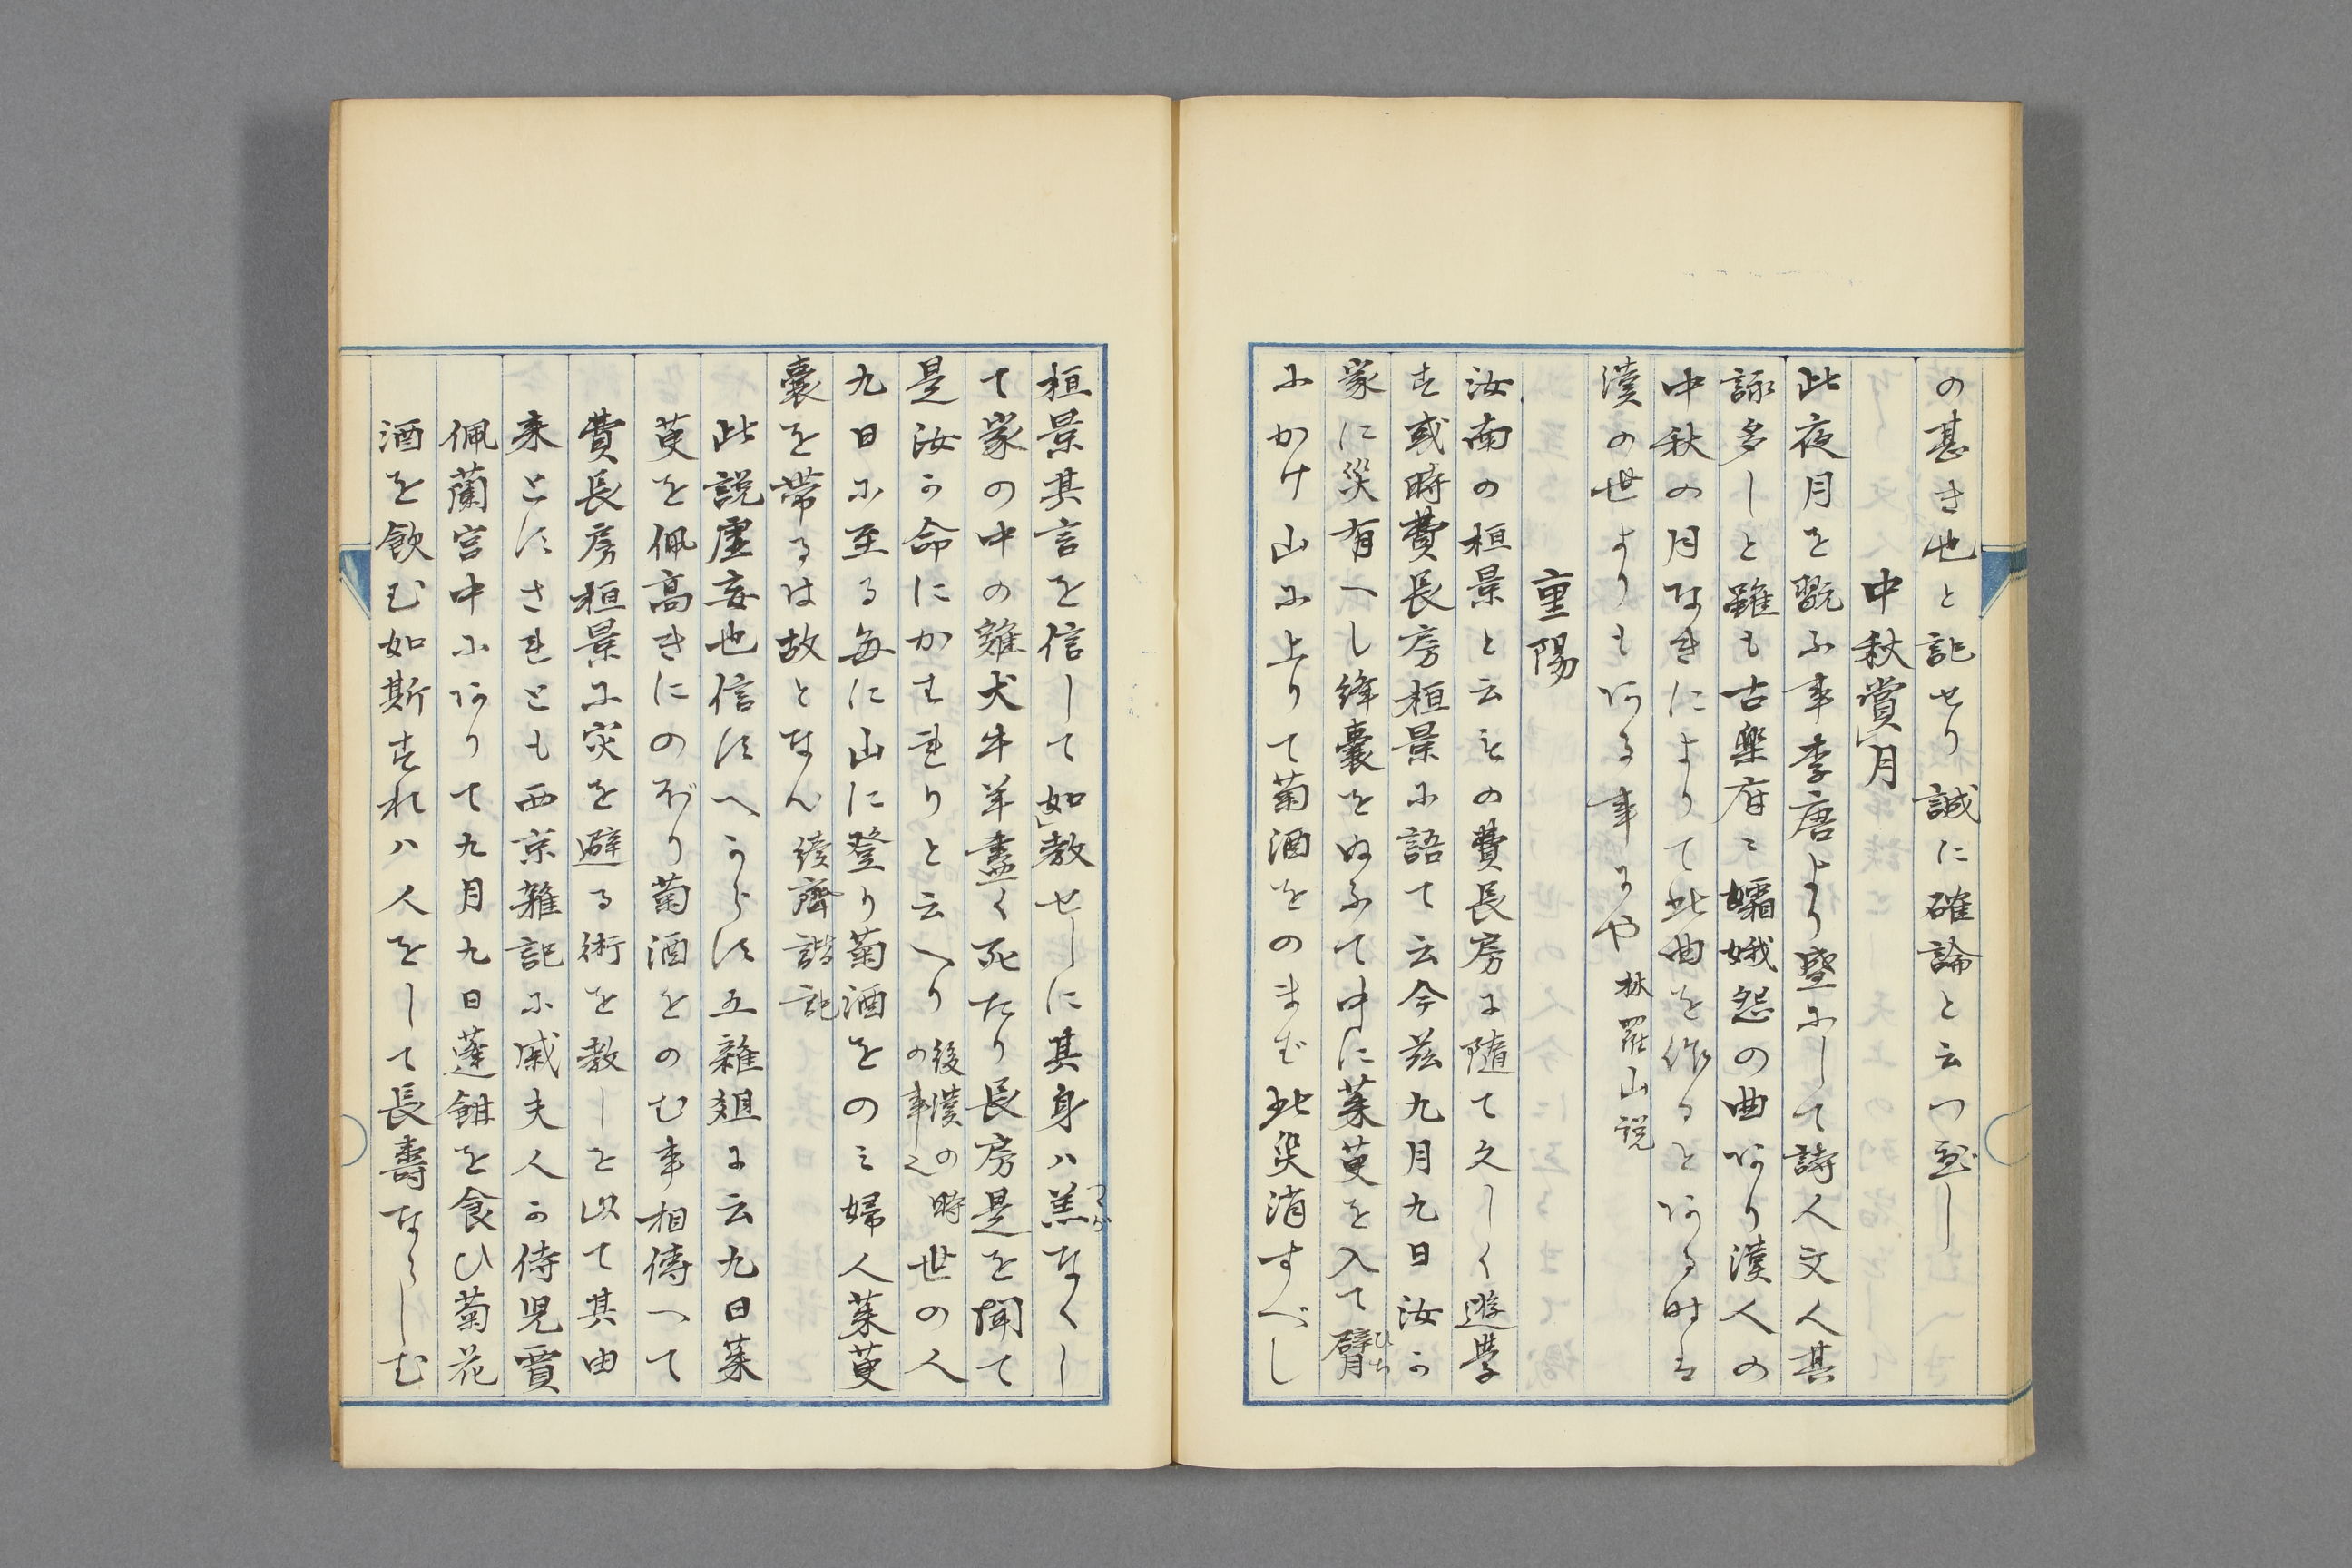 の甚き也と記せり誠に確論と云つべし
中秋賞月
此夜月を翫ふ事李唐より盛にして詩人文人其
詠多しと雖も古楽府に孀娥怨の曲あり漢人の
中秋の月なきによりて此曲を作るとある時は
漢の世よりもある事にや 林羅山説
重陽
汝南の桓景と云もの費長房に随て久しく遊学
す或時費長房桓景に語て云今茲九月九日汝か
家に災有へし絳嚢をぬふて中に茱萸を入て臂ひぢ
にかけ山に上りて菊酒をのまば此災消すべし
桓景其言を信して如教せしに其身ハ恙つゝがなくし
て家の中の雞犬牛羊盡く死たり長房是を聞て
是汝か命にかわれりと云へり 後漢の時の事也 世の人
九日に至る毎に山に登り菊酒をのミ婦人茱萸
嚢を帯るは故となん 続齊諧記
此説虚妄也信すへからす五雑爼に云九日茱
萸を佩高きにのぼり菊酒をのむ事相傳へて
費長房桓景に災を避る術を教しを以て其由
来とすされとも西京雑記に戚夫人か侍児賈
佩蘭宮中にありて九月九日蓬餌を食ひ菊花
酒を飲む如斯すれハ人をして長壽ならしむ